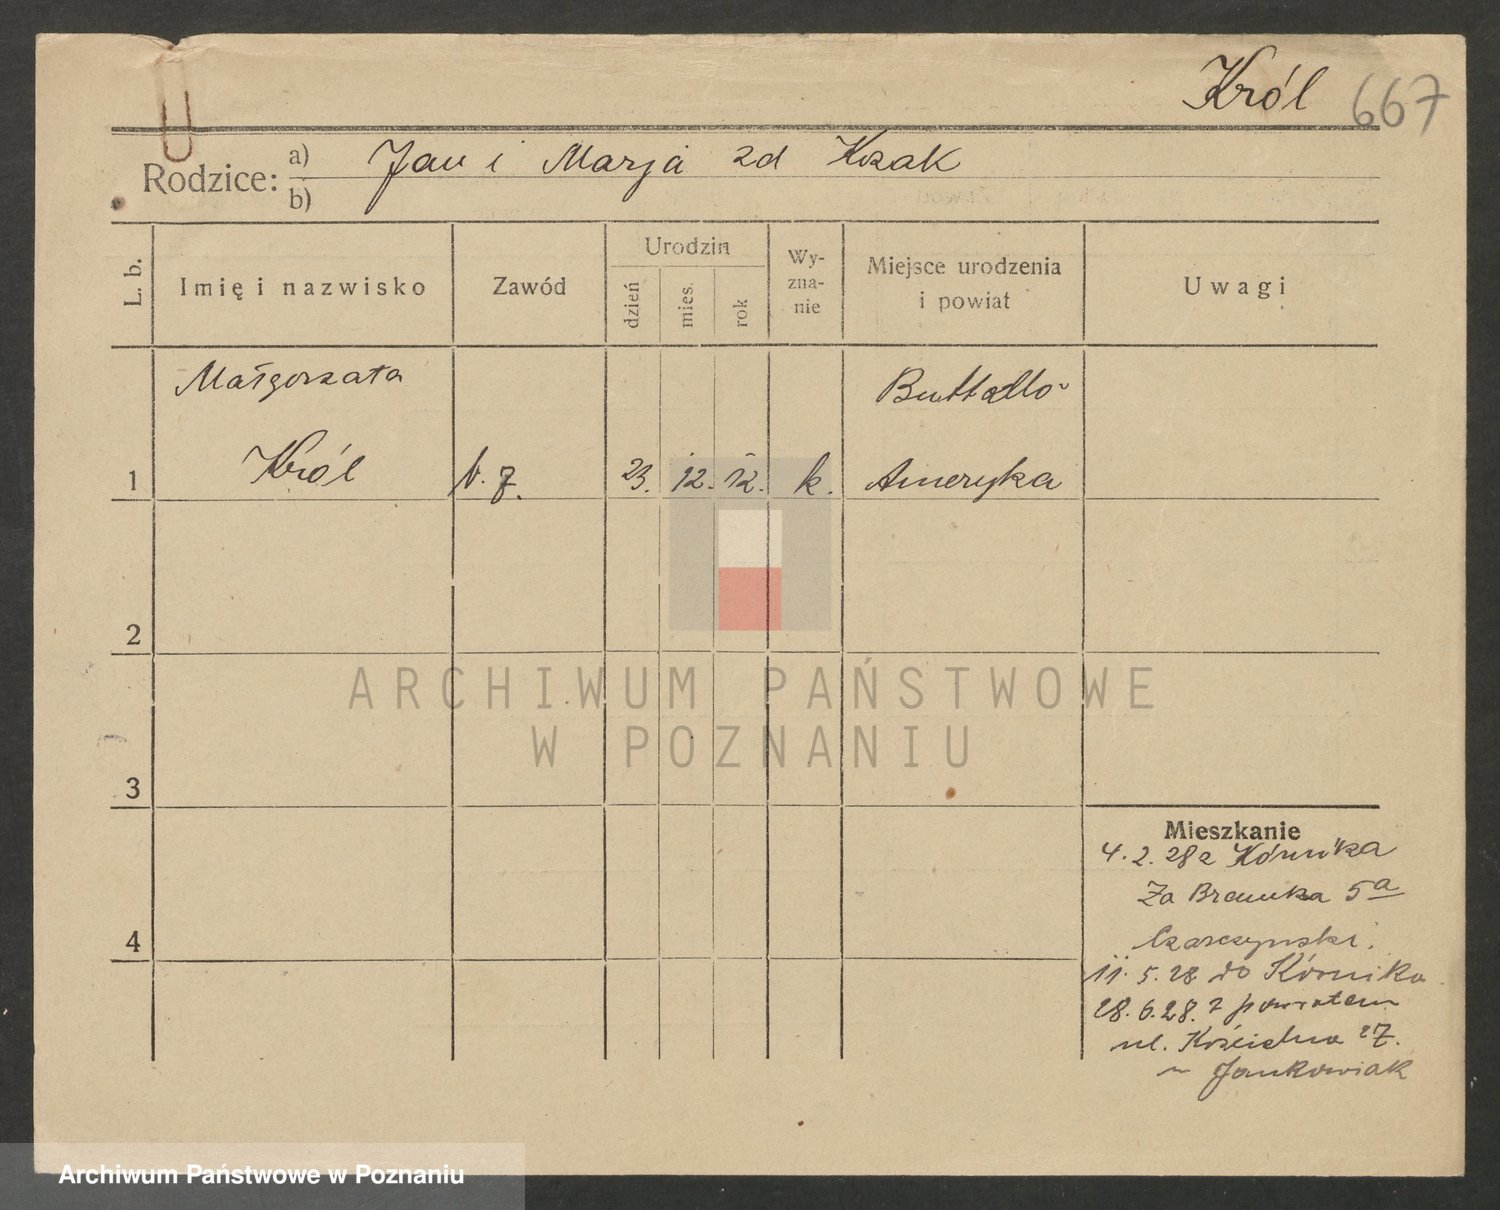 Król 667
Rodzice: a) Jan i Marja zd Kzak
b)
L. b.
Imię i nazwisko
Zawód
Urodzin
dzień
mies.
rok
Wy-
zna-
nie
Miejsce urodzenia
i powiat
Uwagi
Małgorzata
Buttallo-
1 Król b. z. 23. 12. 12. k. Ameryka
2
ARCHIWUM PAŃSTWOWE
W POZNANIU
3
4
Mieszkanie
4. 2. 28 z Kórnika
Za Bramka 5a
11. 5. 28 do Kórnika
28. 6. 28. z powrotem
ul. Kościelna 27.
Jankowiak
Archiwum Państwowe w Poznaniu